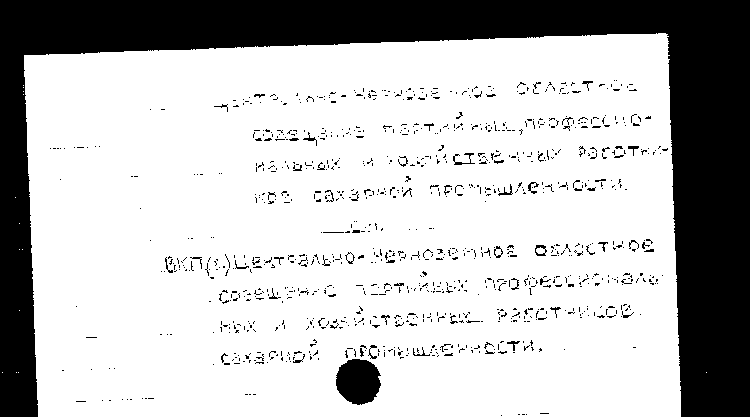 Центрально-Черноземное областное
совещание партийных, профессио-
нальных и хозяйственных работни-
ков сахарной промышленности.
см.
ВКП(б) Центрально-Черноземное областное
совещание партийных, профессиональ-
ных и хозяйственных работников
сахарной промышленности.